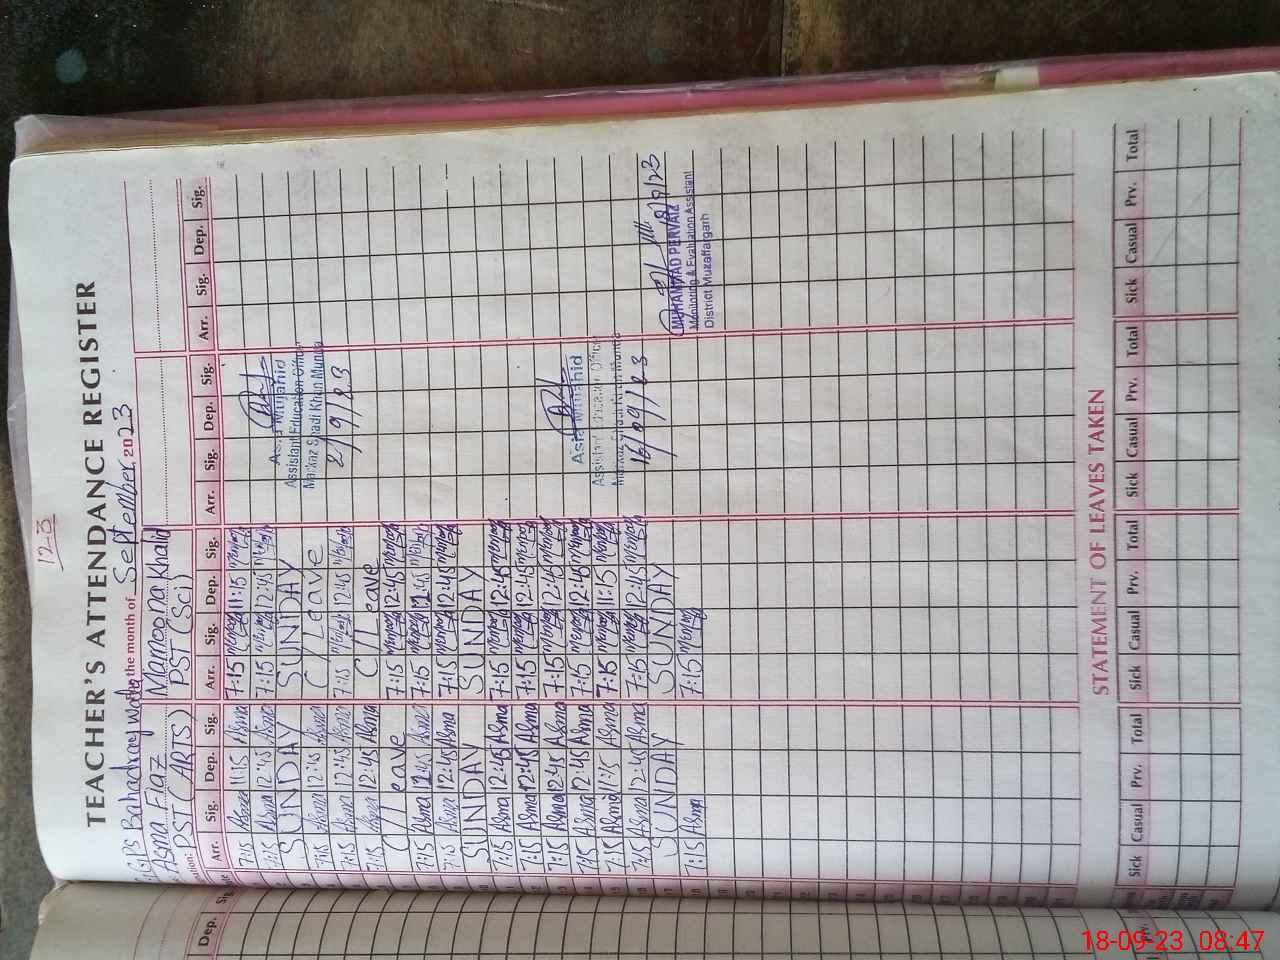 12-3
TEACHER'S ATTENDANCE REGISTER
GPS Bahadray Wala For the month of September 2023
Asma Fiaz Mamoona Khalid
PST (ARTS) PST (Sci)
Arr. Sig. Dep. Sig. Arr. Sig. Dep. Sig. Arr. Sig. Dep. Sig. Arr. Sig. Dep. Sig.
7:15 Asma 11:15 Asma 7:15 11:15
7:15 Asma 12:45 Asma 7:15 12:45
SUNDAY SUNDAY
7:15 Asma 12:45 Asma C/Leave
7:15 Asma 12:45 Asma 7:15 12:45
7:15 Asma 12:45 Asma C/Leave
C/Leave 7:15 12:45
7:15 Asma 12:45 Asma 7:15 12:45
7:15 Asma 12:45 Asma 7:15 12:45
SUNDAY SUNDAY
7:15 Asma 12:45 Asma 7:15 12:45
7:15 Asma 12:45 Asma 7:15 12:45
7:15 Asma 12:45 Asma 7:15 12:45
7:15 Asma 12:45 Asma 7:15 12:45
7:15 Asma 11:15 Asma 7:15 11:15
7:15 Asma 12:45 Asma 7:15 12:45
SUNDAY SUNDAY
7:15 Asma 7:15
Asia Mujahid
Assistant Education Officer
Markaz Shadi Khan Munda
2/9/23
Asia Mujahid
Assistant Education Officer
Markaz Shadi Khan Munda
16/09/23
18/9/23
MUHAMMAD PERVAIZ
Monitoring & Evaluation Assistant
District Muzaffargarh
STATEMENT OF LEAVES TAKEN
Sick Casual Prv. Total Sick Casual Prv. Total Sick Casual Prv. Total Sick Casual Prv. Total
Dep. Sig.
Prv.
18-09-23 08:47